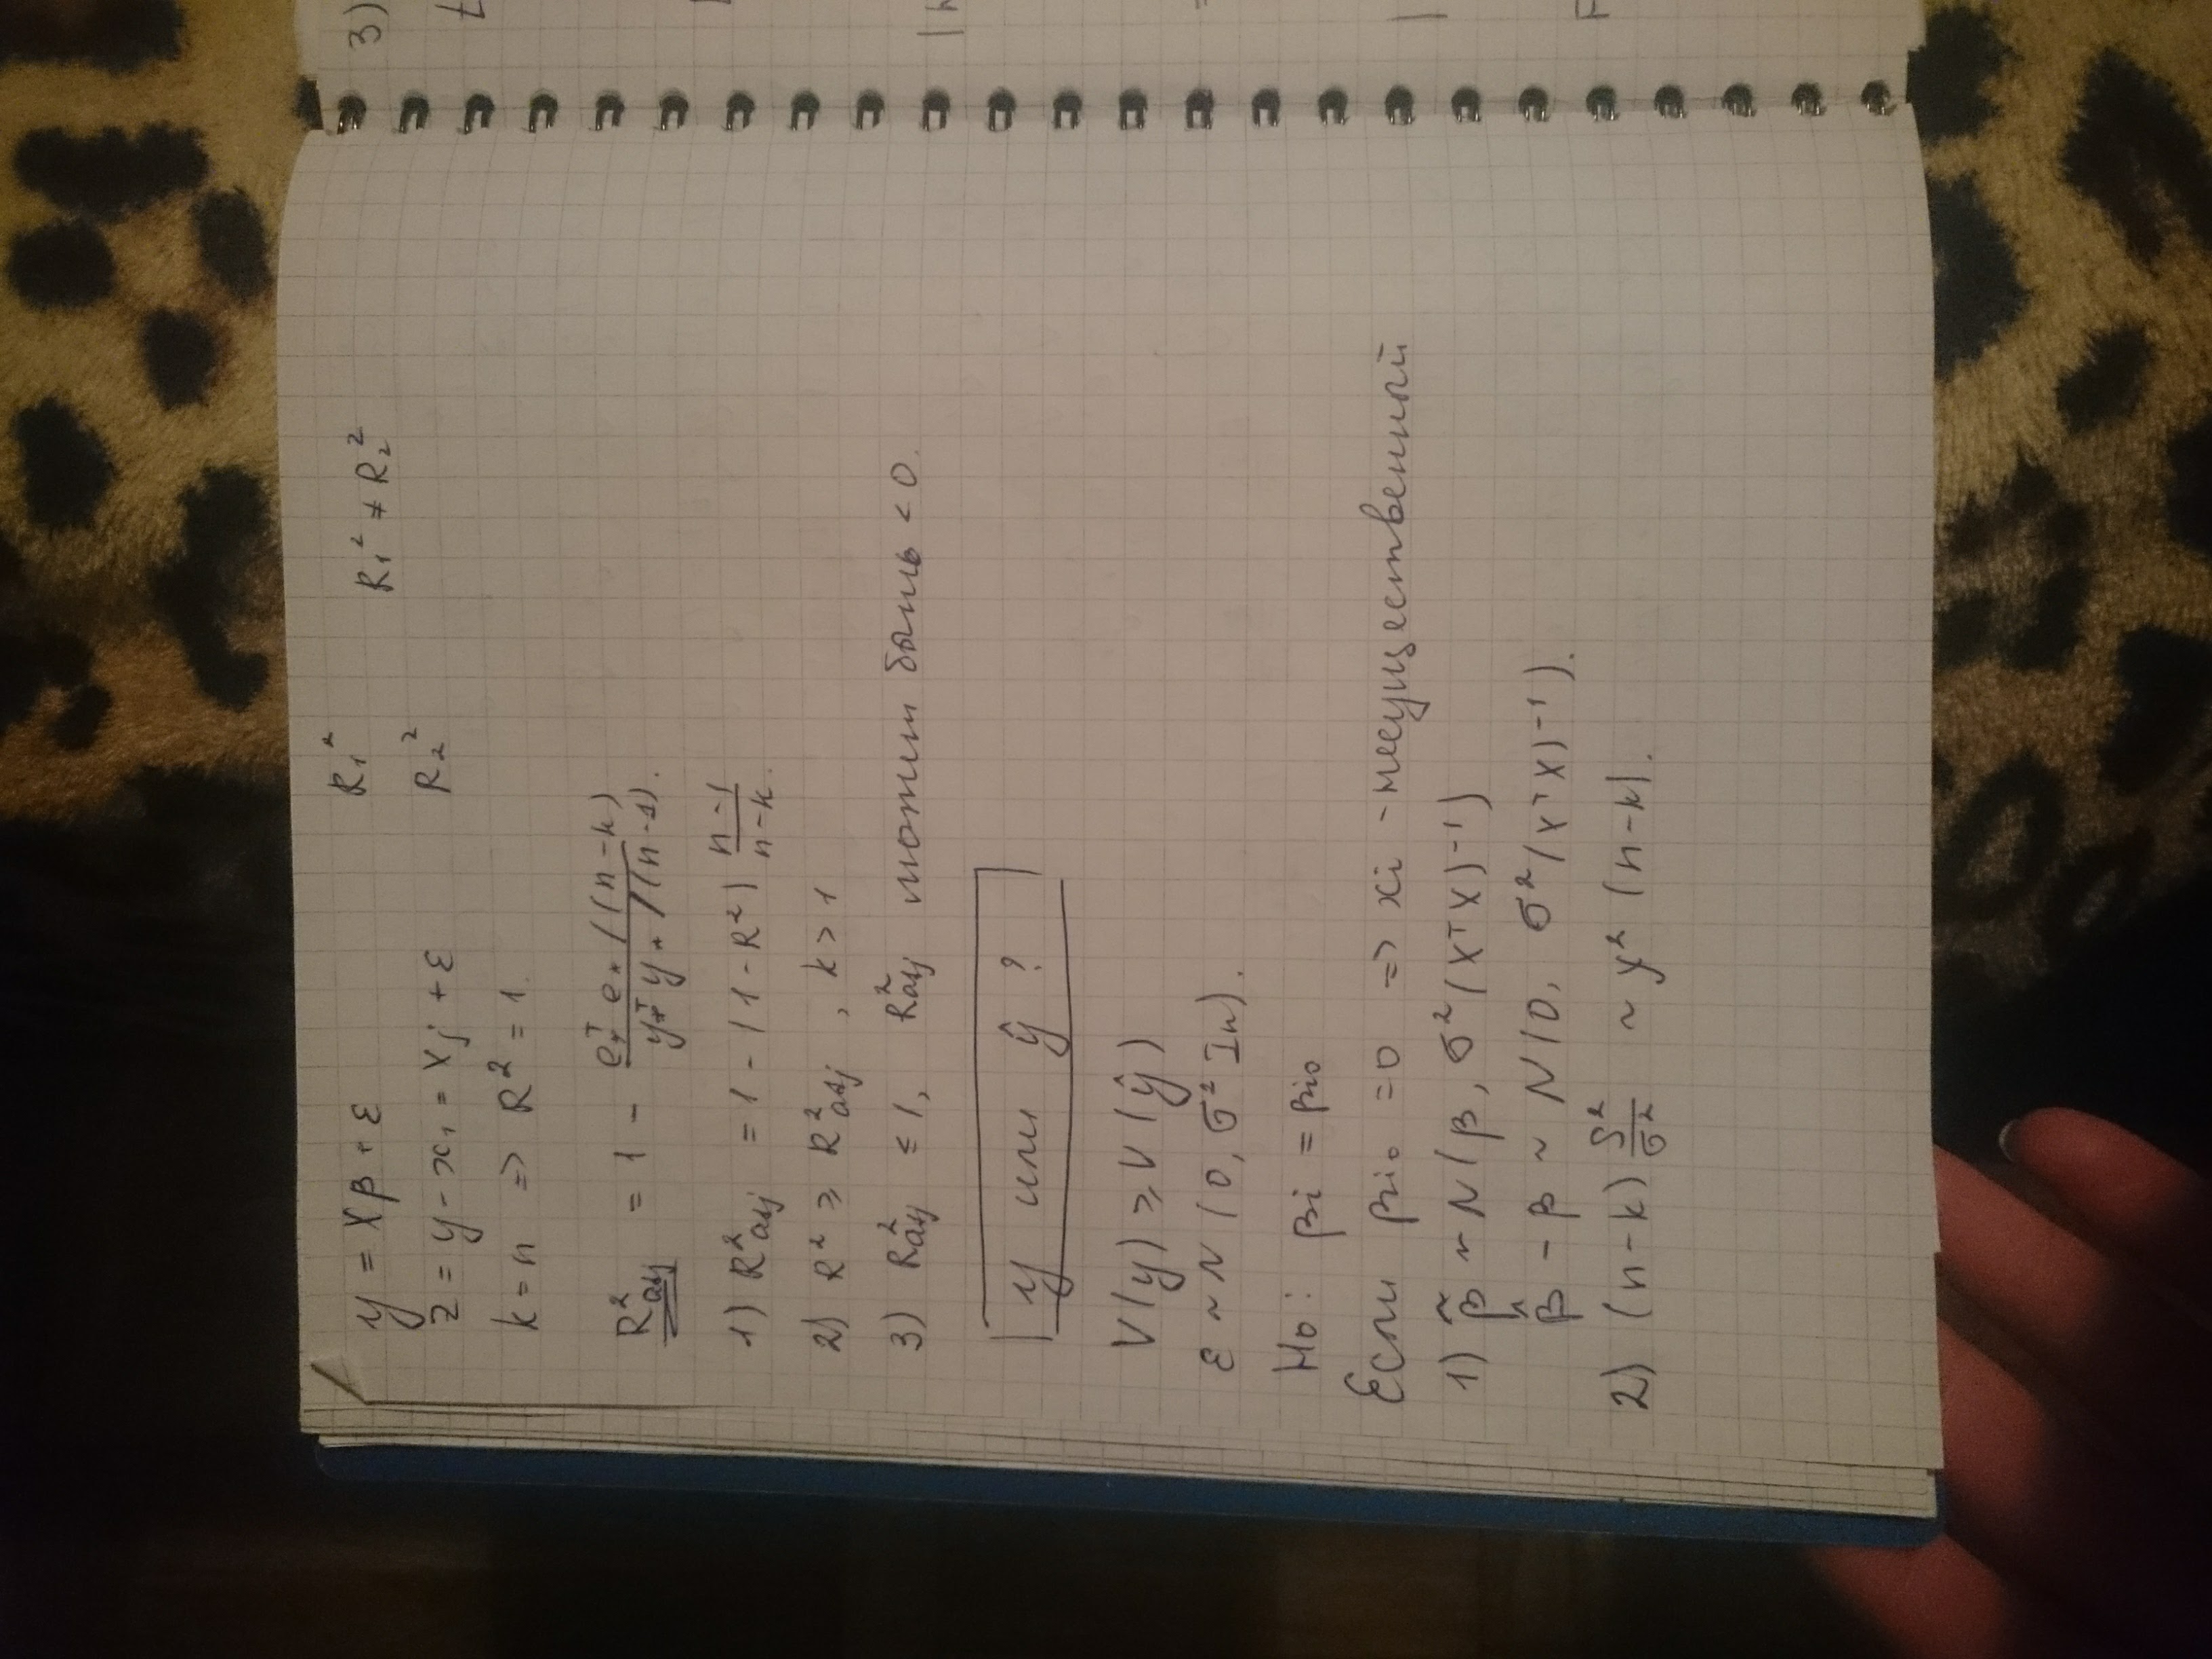 y = Xβ + ε R₁²
R₁² ≠ R₂²
z = y - x₁ = Xγ + ε R₂²
k = n => R² = 1.
R²adj = 1 - (e*ᵀ e* / (n-k)) / (y*ᵀ y* / (n-1)).
1) R²adj = 1 - (1 - R²) (n-1)/(n-k).
2) R² ≥ R²adj , k > 1
3) R²adj ≤ 1, R²adj может быть < 0.
y или ŷ ?
V(y) ≥ V(ŷ)
ε ~ N (0, σ² Iₙ).
H₀: βi = βi₀
Если βi₀ = 0 => xi - несущественный
1) β̂ ~ N(β, σ²(XᵀX)⁻¹)
β̂ - β ~ N(0, σ²(XᵀX)⁻¹).
2) (n-k) S²/σ² ~ χ² (n-k).
3)